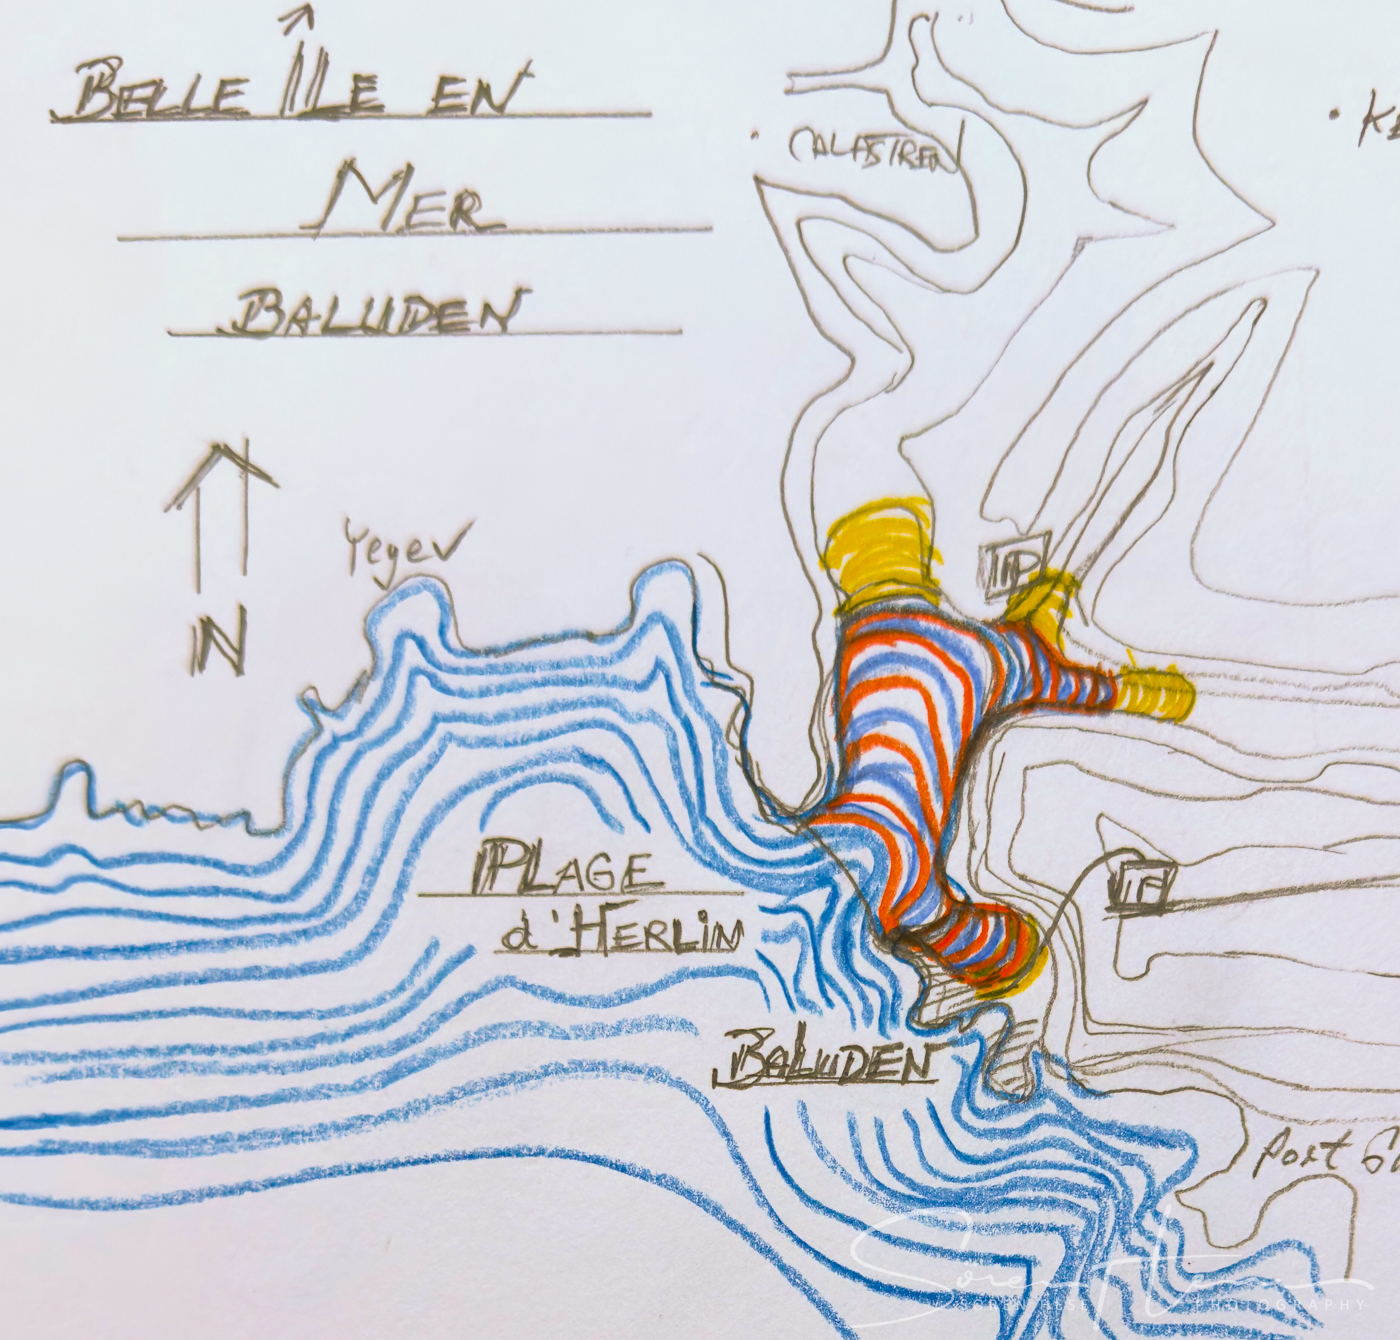 BELLE ÎLE EN
MER
BALUDEN
CALASTREN
N
Yeyev
PLAGE
d'HERLIN
BALUDEN
Port
SÖREN HESE PHOTOGRAPHY